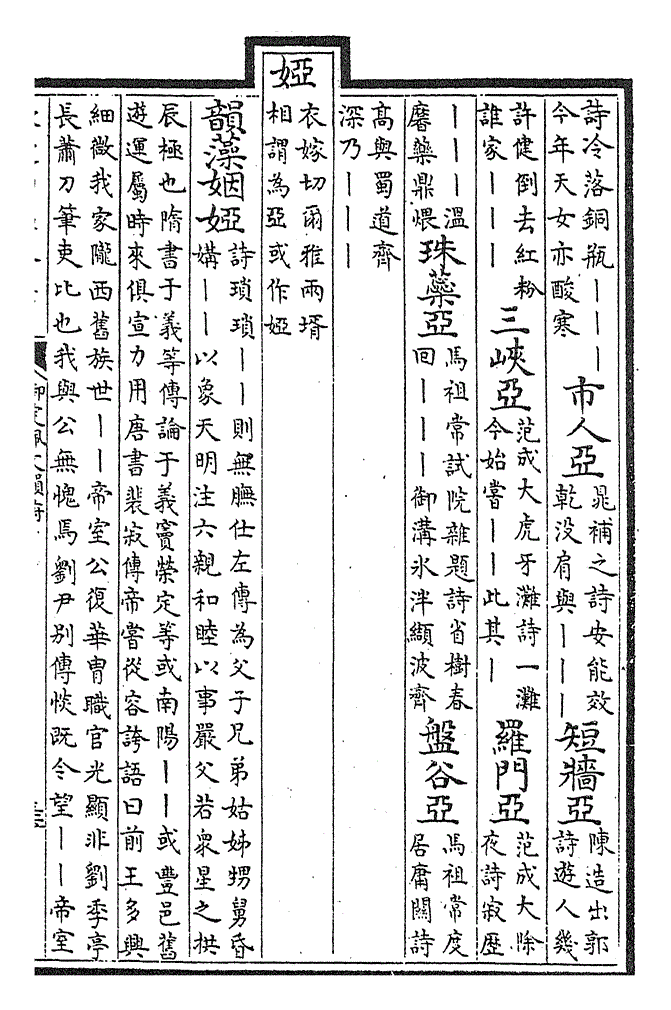 詩冷落銅瓶丨丨丨
今年天女亦酸寒
市人亞
晁補之詩安能效
乾没肩與丨丨丨
短牆亞
陳造出郭
詩遊人幾
許健倒去紅粉
誰家丨丨丨
三峽亞
范成大虎牙灘詩一灘
今始嘗丨丨此其丨
羅門亞
范成大除
夜詩寂歷
丨丨丨溫
藥鼎煨
珠蘂亞
馬祖常試院雜題詩省樹春
回丨丨丨御溝氷泮纈波齊
盤谷亞
馬祖常度
居庸關詩
高與蜀道齊
深乃丨丨丨
婭
衣嫁切爾雅兩壻
相謂為亞或作婭
韻藻姻婭
詩瑣瑣丨丨則無膴仕左傳為父子兄弟姑姊甥舅昏
媾丨丨以象天明注六親和睦以事嚴父若衆星之拱
辰極也隋書于義等傳論于義竇榮定等或南陽丨丨或豐邑舊
遊運屬時來俱宣力用唐書裴寂傳帝嘗從容誇語曰前王多興
細微我家隴西舊族世丨丨帝室公復華胄職官光顯非劉季亭
長蕭刀筆吏比也我與公無愧焉劉尹别傳惔既令望丨丨帝室